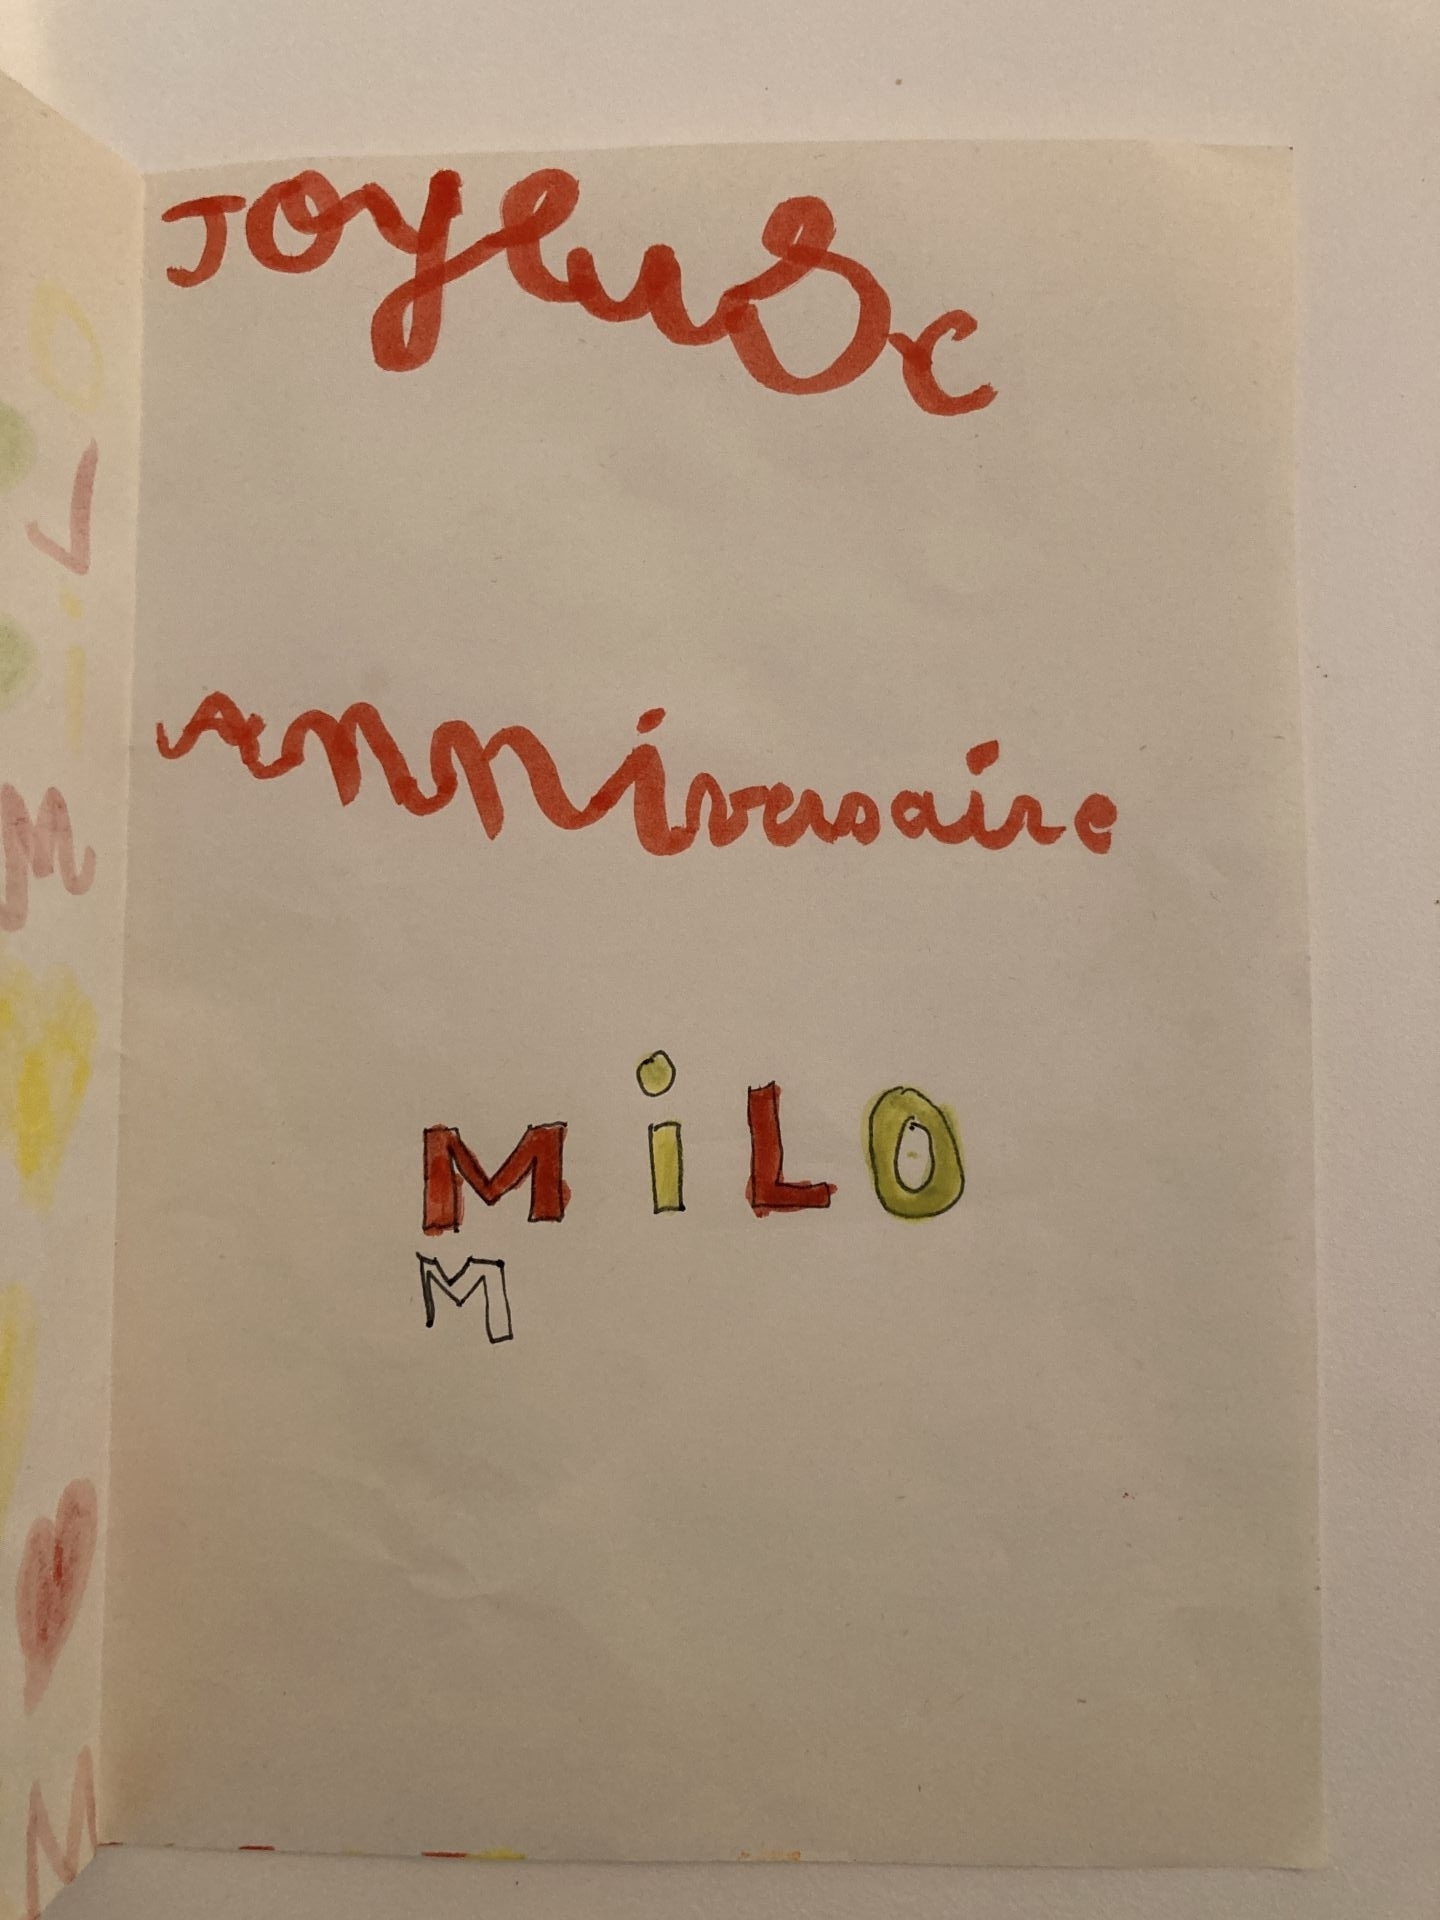 Joyeuse
Anniversaire
MiLO
M